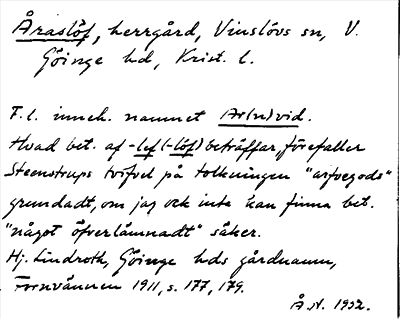 Åraslöf, herrgård, Vinslövs sn, V.
Göinge hd, Krist. l.
F.l. inneh. namnet Ar(n)vid.
Hvad bet. af -lef (-löf) beträffar, förefaller
Steenstrups tvifvel på tolkningen "arfvegods"
grundadt, om jag ock inte kan finna bet.
"något öfverlämnadt" säker.
Hj. Lindroth, Göinge hds gårdnamn,
Fornvännen 1911, s. 177, 179.
Å.N. 1932.